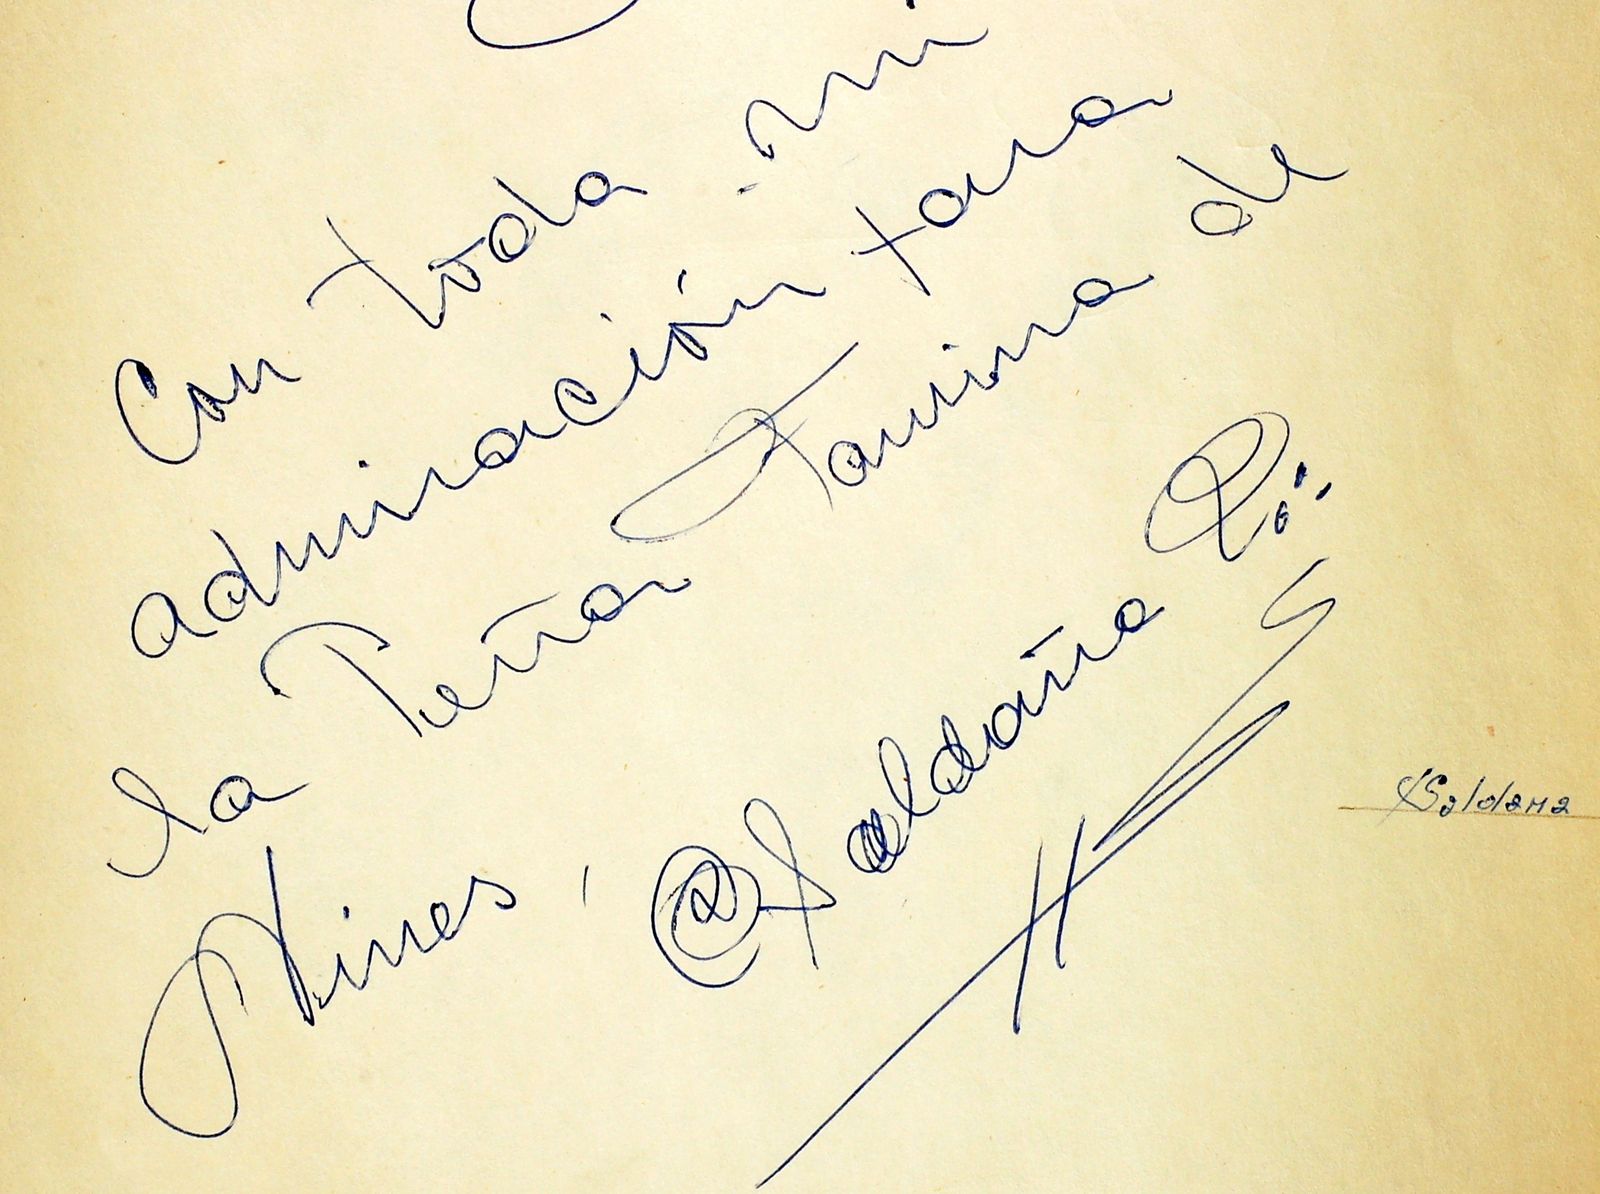 Con toda mi
admiración para
la Peña Taurina de
Nimes,
Saldaña
Saldana